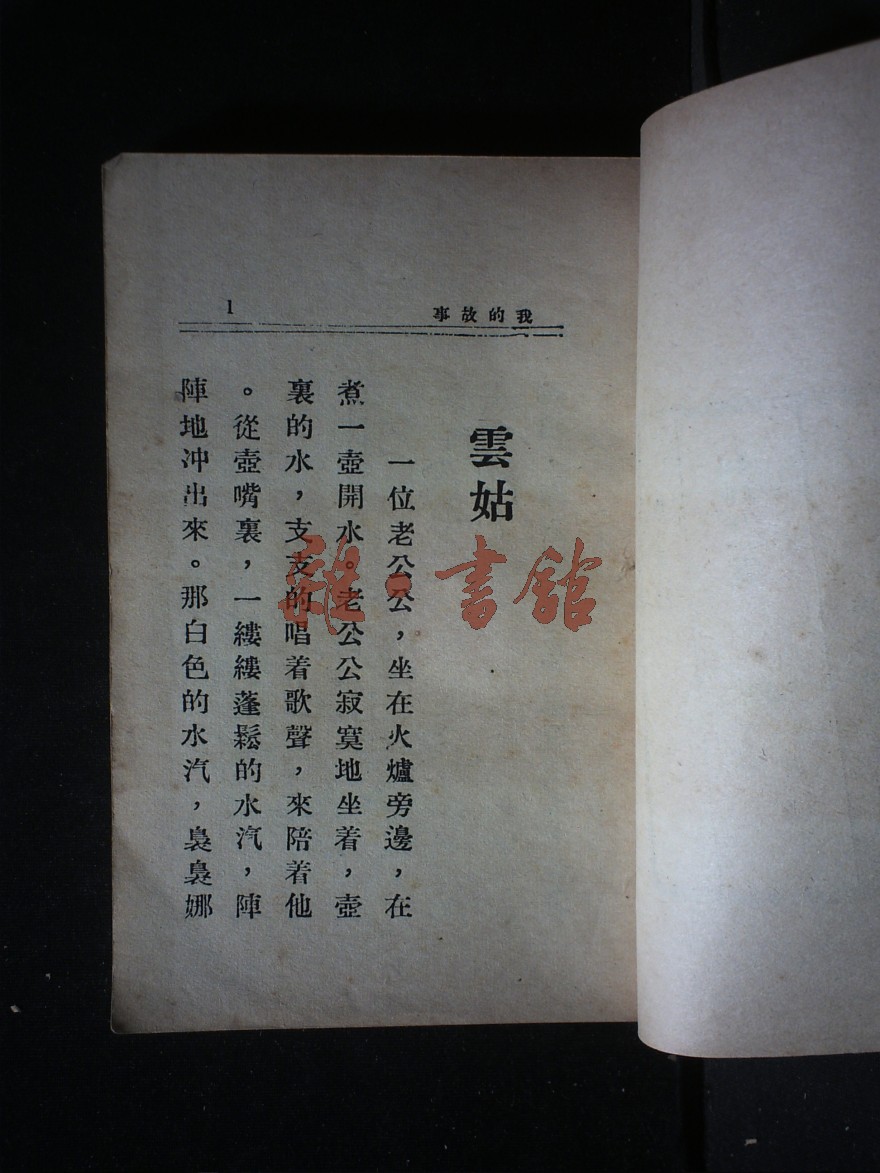 我的故事
1
雲姑
一位老公公，坐在火爐旁邊，在
煮一壺開水。老公公寂寞地坐着，壺
裏的水，支支的唱着歌聲，來陪着他
。從壺嘴裏，一縷縷蓬鬆的水汽，陣
陣地冲出來。那白色的水汽，裊裊娜
雜·書館